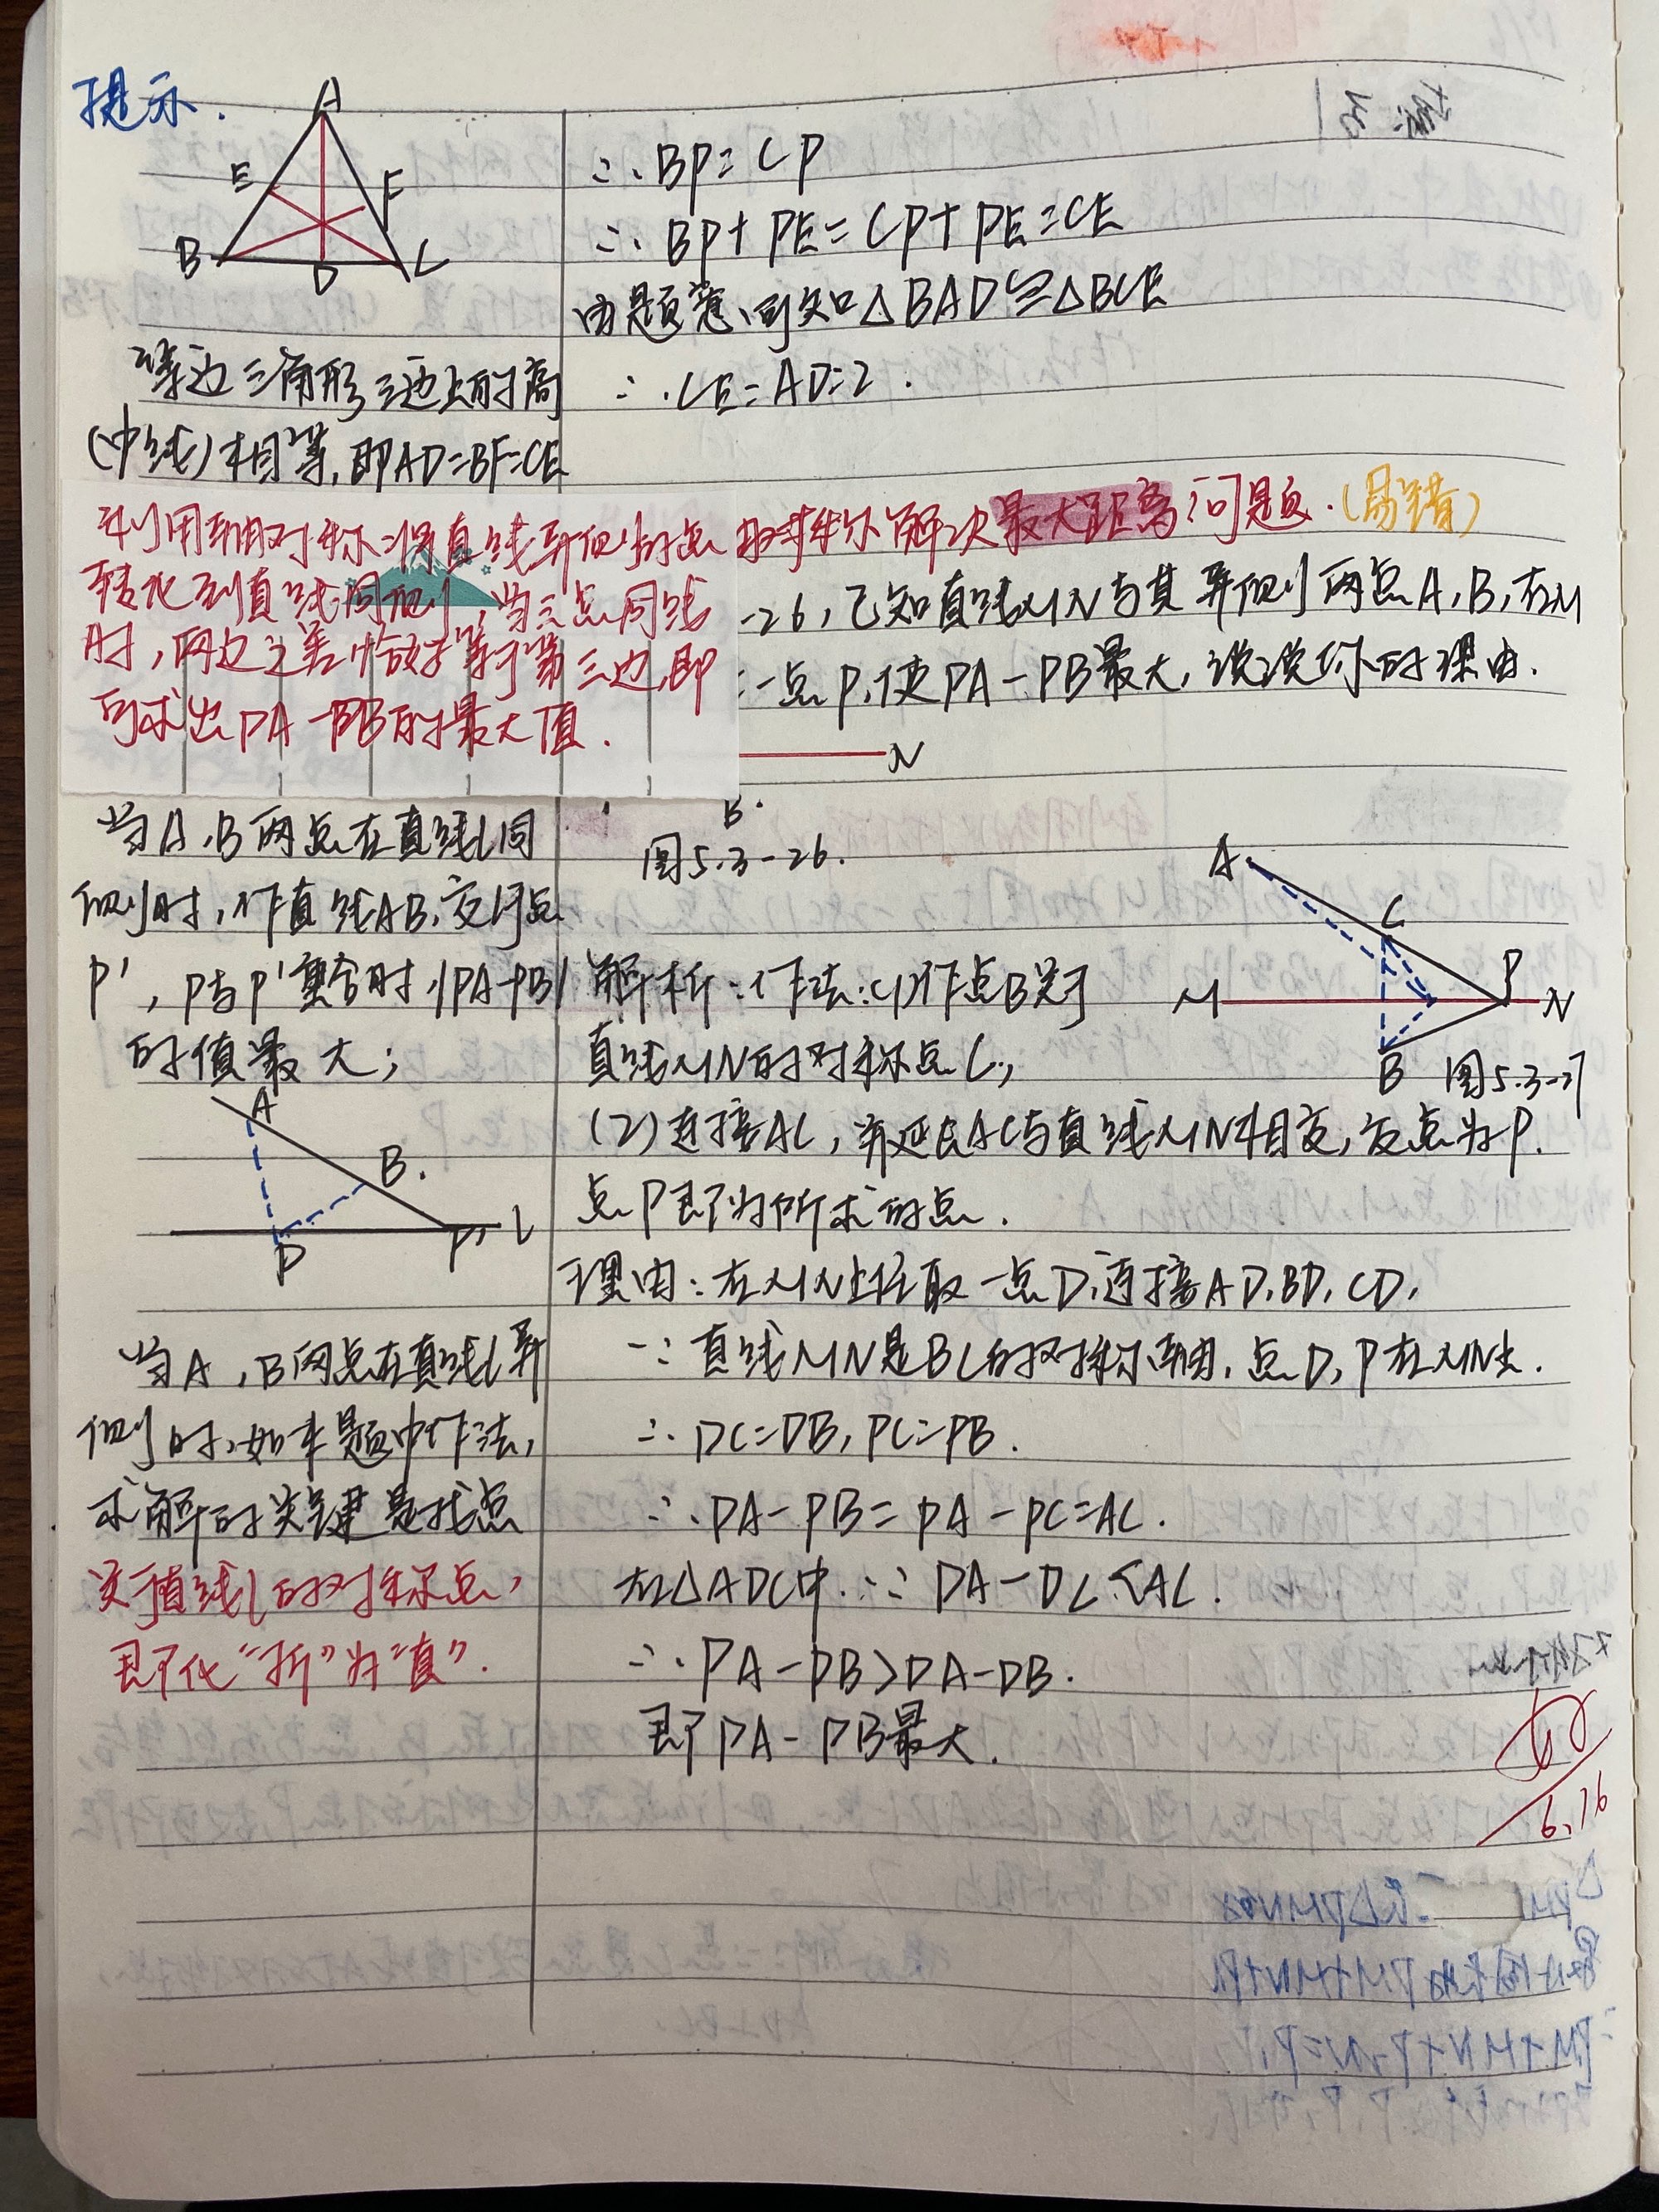 提示.
A
E
F
B
D
C
等边三角形三边上的高
(中线)相等,即AD=BF=CE
∴BP=CP
∴BP+PE=CP+PE=CE
由题意,可知△BAD≌△BCE
∴CE=AD=2.
利用轴对称:将直线异侧的点
转化到直线同侧,当三点同线
时,两边之差恰好等于第三边,即
可求出PA-PB的最大值.
解决最大距离问题.(易错)
-26,已知直线MN与其异侧两点A,B,在M
一点P,使PA-PB最大,说说你的理由.
N
B.
图5.3-26.
当A,B两点在直线l同
侧时,作直线AB,交l于点
P',P与P'重合时,|PA-PB|
的值最大;
A
B.
P
P'
l
当A,B两点在直线l异
侧时,如本题中作法,
求解的关键是找点
关于直线l的对称点,
即化“折”为“直”.
A
C
P
M
N
B
图5.3-27
解析:作法:(1)作点B关于
直线MN的对称点C;
(2)连接AC,并延长AC与直线MN相交,交点为P.
点P即为所求的点.
理由:在MN上任取一点D,连接AD,BD,CD,
∵直线MN是BC的对称轴,点D,P在MN上.
∴DC=DB,PC=PB.
∴PA-PB=PA-PC=AC.
在△ADC中.∵DA-DC<AC.
∴PA-PB>DA-DB.
即PA-PB最大.
6.16